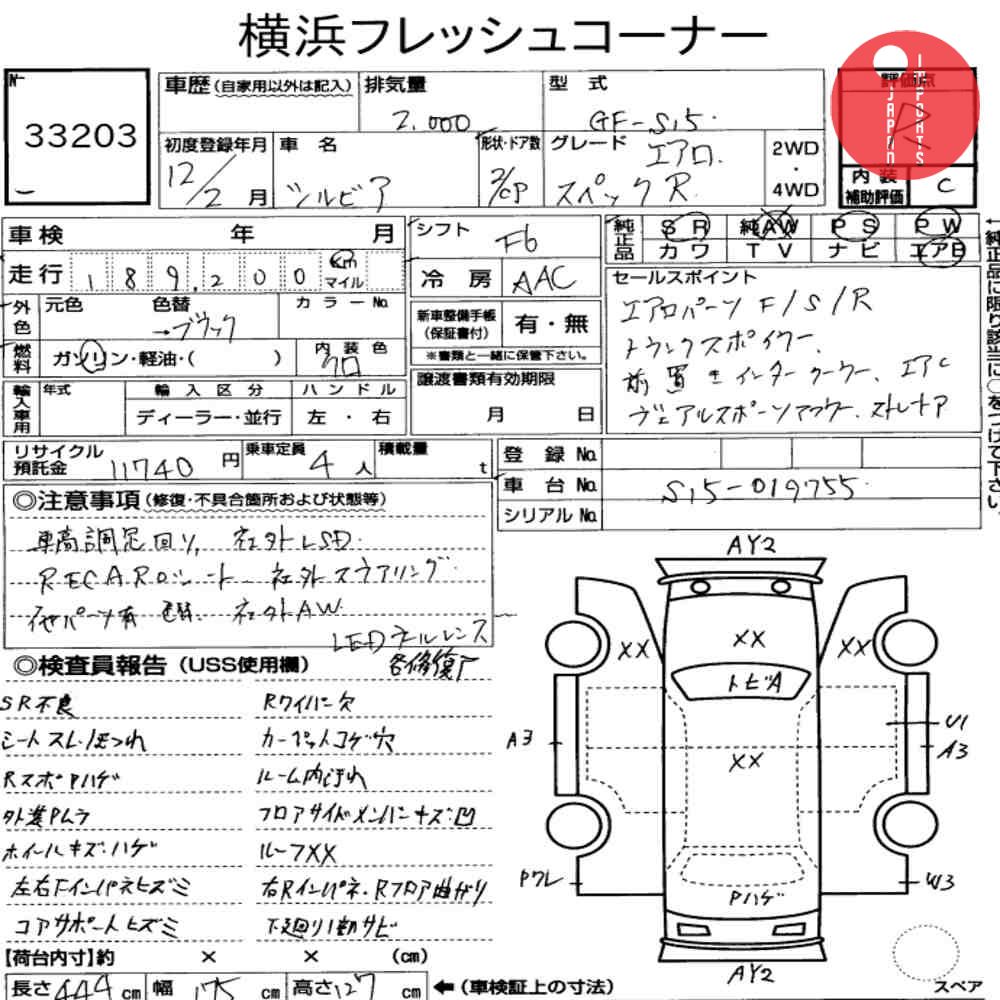 横浜フレッシュコーナー
No
33203
車歴(自家用以外は記入)
排気量
2.000
型 式
GF-S15
評価点
R
JAPAN
IMPORTS
初度登録年月
12/2月
車 名
シルビア
形状・ドア数
2/CP
グレード
エアロ
スペックR
2WD
・
4WD
内装
補助評価
C
車検 年 月
シフト
F6
純正品
SR 純AW PS PW
カワ TV ナビ エアB
走行 189,200 km
マイル
冷房
AAC
セールスポイント
エアロパーツ F/S/R
トランクスポイラー、
前置きインタークーラー、エアC
ヴェアルスポーツマフラー、ストレートア
←純正品に限り該当に○をつけて下さい。
外色
元色 色替 カラーNo.
→ブラック
新車整備手帳
(保証書付)
有・無
※書類と一緒に保管下さい。
燃料
ガソリン・軽油・( )
内装色
クロ
輸入車用
年式
輸入区分
ハンドル
ディーラー・並行
左・右
譲渡書類有効期限
月 日
リサイクル
預託金
11740円
乗車定員
4人
積載量
t
登録No.
車台No.
S15-019755
シリアルNo.
◎注意事項(修復・不具合箇所および状態等)
車高調足回り、社外LSD
RECAROシート 社外ステアリング
他パーツ有 色替 社外AW
LEDテールレンズ
◎検査員報告(USS使用欄)
各修復ア
SR不良
Rワイパー穴
シートスレ・ほつれ
カーペットコゲ穴
RスポPハゲ
ルーム内汚れ
外装Pムラ
フロアサイドメンバーキズ・凹
ホイールキズ・ハゲ
ルーフXX
左右Fインパネヒズミ
右Rインパネ・Rフロア曲がり
コアサポートヒズミ
下廻り1部サビ
AY2
XX
XX
XX
トビA
A3
U1
A3
XX
Pワレ
W3
Pハゲ
AY2
スペア
【荷台内寸】約 × × (cm)
長さ444cm
幅175cm
高さ127cm
←(車検証上の寸法)